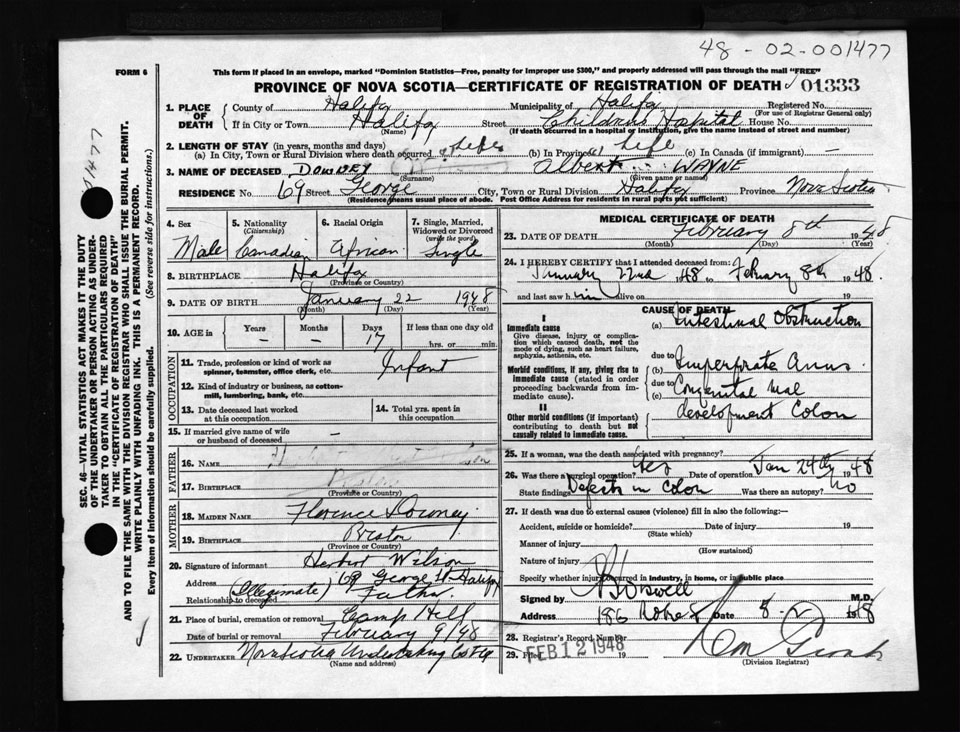 48-02-001477
FORM 6
This form if placed in an envelope, marked "Dominion Statistics—Free, penalty for improper use $300," and properly addressed will pass through the mail "FREE"
PROVINCE OF NOVA SCOTIA—CERTIFICATE OF REGISTRATION OF DEATH 01333
1. PLACE OF DEATH County of Halifax Municipality of Halifax Registered No.
(For use of Registrar General only)
If in City or Town Halifax Street Childrens Hospital House No.
(Name) (If death occurred in a hospital or institution, give the name instead of street and number)
2. LENGTH OF STAY (in years, months and days)
(a) In City, Town or Rural Division where death occurred Life (b) In Province Life (c) In Canada (if immigrant) —
3. NAME OF DECEASED DOWNEY Albert WAYNE
(Surname) (Given name or names)
RESIDENCE No. 69 Street George City, Town or Rural Division Halifax Province Nova Scotia
(Residence means usual place of abode. Post Office Address for residents in rural parts not sufficient)
4. Sex 5. Nationality (Citizenship) 6. Racial Origin 7. Single, Married, Widowed or Divorced (write the word)
Male Canadian African Single
8. BIRTHPLACE Halifax
(Province or Country)
9. DATE OF BIRTH January 22 1948
(Month) (Day) (Year)
10. AGE in Years Months Days If less than one day old
— — 17 hrs. or min.
OCCUPATION
11. Trade, profession or kind of work as spinner, teamster, office clerk, etc. Infant
12. Kind of industry or business, as cotton-mill, lumbering, bank, etc.
13. Date deceased last worked at this occupation
14. Total yrs. spent in this occupation
15. If married give name of wife or husband of deceased —
FATHER
16. NAME
17. BIRTHPLACE
(Province or Country)
MOTHER
18. MAIDEN NAME Florence Downey
19. BIRTHPLACE Preston
(Province or Country)
20. Signature of informant Herbert Wilson
Address 69 George St Halifax
Relationship to deceased (Illegimate) Father
21. Place of burial, cremation or removal Camp Hill
Date of burial or removal February 9/48
22. UNDERTAKER Nova Scotia Undertaking
(Name and address)
MEDICAL CERTIFICATE OF DEATH
23. DATE OF DEATH February 8th 1948
(Month) (Day) (Year)
24. I HEREBY CERTIFY that I attended deceased from:
January 22nd 1948 to February 8th 1948.
and last saw him alive on 19
CAUSE OF DEATH
I
Immediate cause
Give disease, injury or complication which caused death, not the mode of dying, such as heart failure, asphyxia, asthenia, etc.
(a) Intestinal Obstruction
due to
Morbid conditions, if any, giving rise to immediate cause (stated in order proceeding backwards from immediate cause).
(b) Imperforate Anus
due to
(c) Congenital mal
development Colon
II
Other morbid conditions (if important) contributing to death but not causally related to immediate cause.
25. If a woman, was the death associated with pregnancy?
26. Was there a surgical operation? Yes Date of operation Jan 24th 1948
State findings Defects in Colon Was there an autopsy? No
27. If death was due to external causes (violence) fill in also the following:—
Accident, suicide or homicide? Date of injury 19
(State which)
Manner of injury
(How sustained)
Nature of injury
Specify whether injury occurred in industry, in home, or in public place
Signed by M.D.
Address 186 Date 8-2 1948
28. Registrar's Record Number
29. Filed FEB 12 1948 19
(Division Registrar)
SEC. 46—VITAL STATISTICS ACT MAKES IT THE DUTY
OF THE UNDERTAKER OR PERSON ACTING AS UNDER-
TAKER TO OBTAIN ALL THE PARTICULARS REQUIRED
IN THE "CERTIFICATE OF REGISTRATION OF DEATH"
AND TO FILE THE SAME WITH THE DIVISION REGISTRAR WHO SHALL ISSUE THE BURIAL PERMIT.
WRITE PLAINLY WITH UNFADING INK. THIS IS A PERMANENT RECORD.
Every item of information should be carefully supplied. (See reverse side for instructions.)
01477